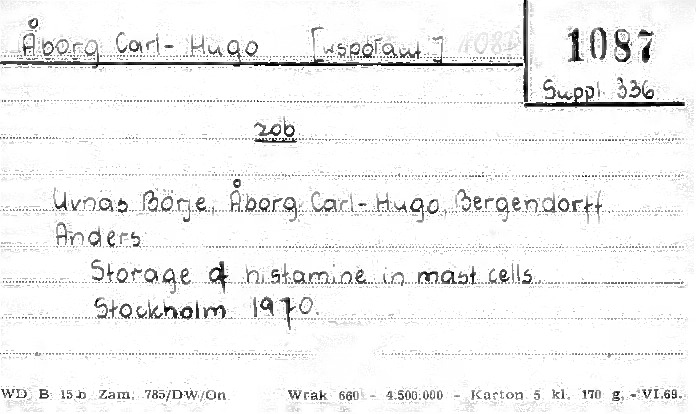 Åborg Carl-Hugo [współaut]
1087
Suppl. 336
zob
Uvnas Börje, Åborg Carl-Hugo, Bergendorff
Anders
Storage of histamine in mast cells.
Stockholm 1970.
WD B 15b Zam. 785/DW/On Wrak 660 - 4.500.000 - Karton 5 kl. 170 g. - VI.69.